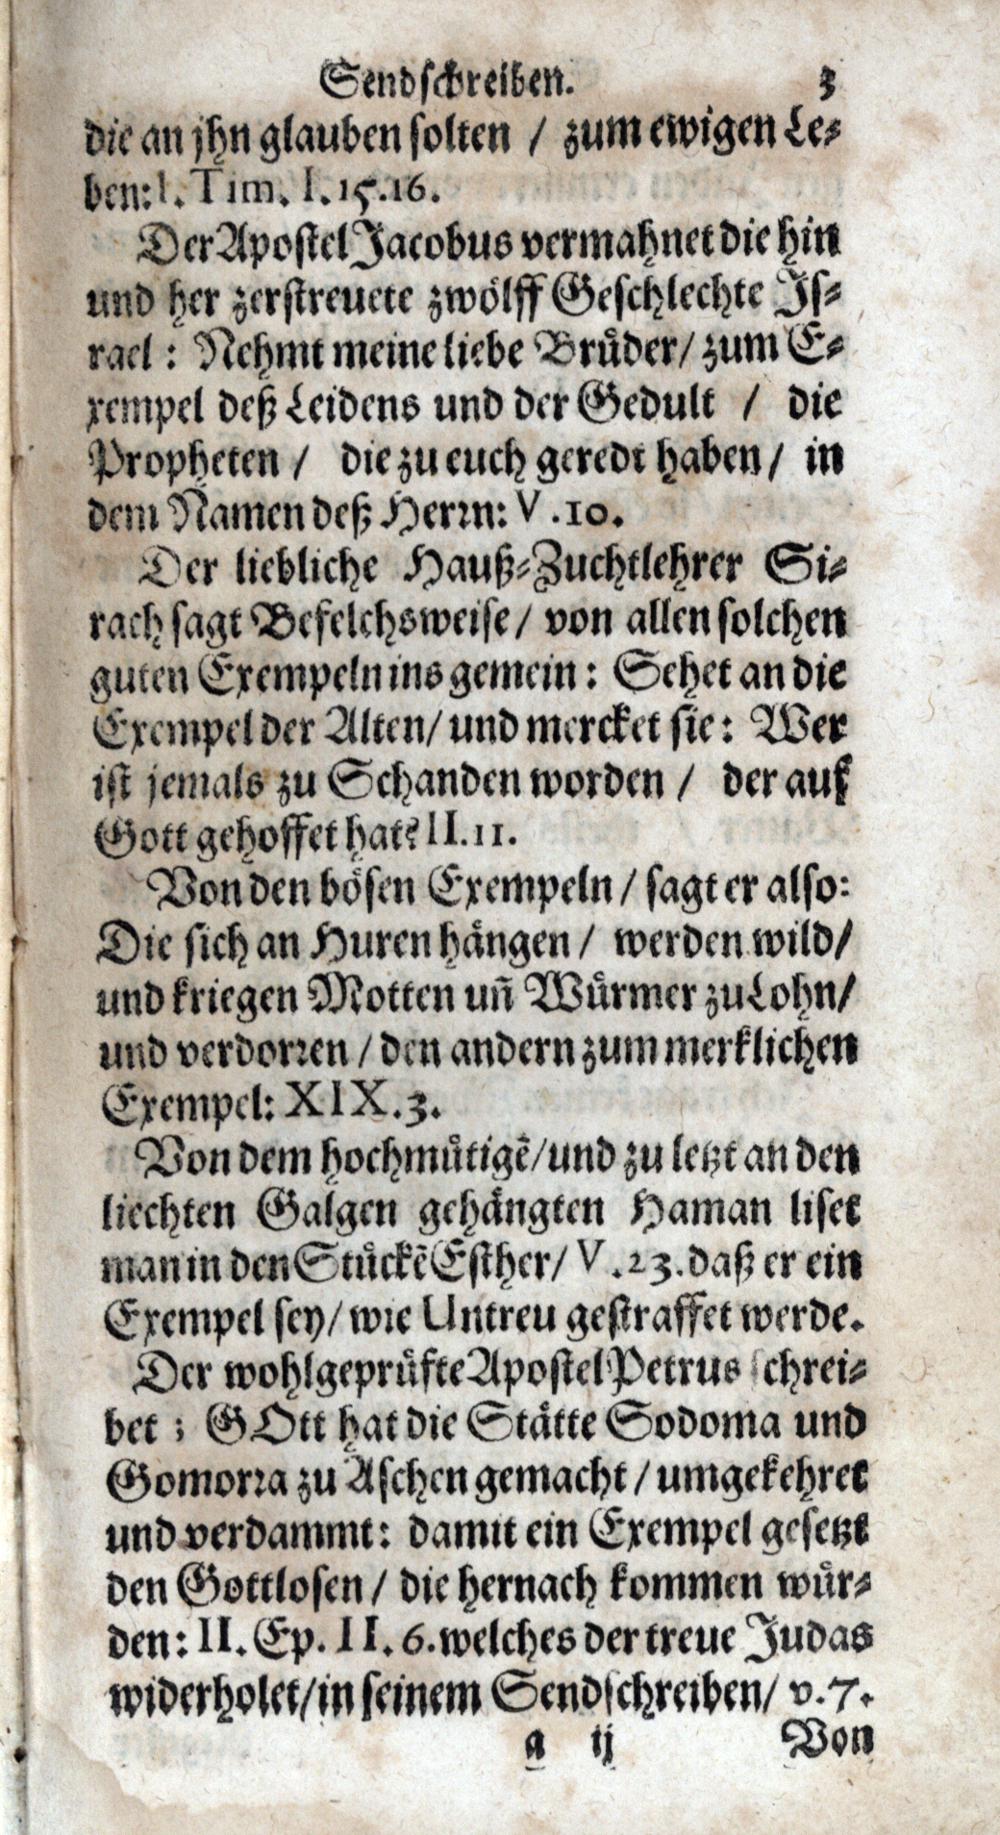 Sendschreiben. 3
die an jhn glauben solten / zum ewigen Le-
ben: I. Tim. I. 15. 16.
Der Apostel Jacobus vermahnet die hin
und her zerstreuete zwölff Geschlechte Is-
rael : Nehmt meine liebe Brüder / zum E-
xempel deß Leidens und der Gedult / die
Propheten / die zu euch geredt haben / in
dem Namen deß Herrn: V. 10.
Der liebliche Hauß-Zuchtlehrer Si-
rach sagt Befelchsweise / von allen solchen
guten Exempeln ins gemein : Sehet an die
Exempel der Alten / und mercket sie : Wer
ist jemals zu Schanden worden / der auf
Gott gehoffet hat? II. 11.
Von den bösen Exempeln / sagt er also:
Die sich an Huren hängen / werden wild /
und kriegen Motten uñ Würmer zu Lohn /
und verdorren / den andern zum merklichen
Exempel: XIX. 3.
Von dem hochmütigẽ / und zu letzt an den
liechten Galgen gehängten Haman liset
man in den Stückẽ Esther / V. 23. daß er ein
Exempel sey / wie Untreu gestraffet werde.
Der wohlgeprüfte Apostel Petrus schrei-
bet ; GOtt hat die Stätte Sodoma und
Gomorra zu Aschen gemacht / umgekehret
und verdammt : damit ein Exempel gesetzt
den Gottlosen / die hernach kommen wür-
den : II. Ep. II. 6. welches der treue Judas
widerholet / in seinem Sendschreiben / v. 7.
a ij Von